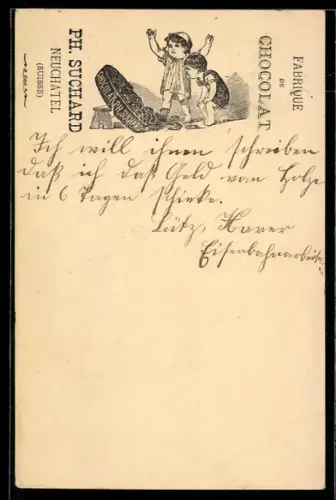 FABRIQUE
DE
CHOCOLAT
PH. SUCHARD
NEUCHATEL
(SUISSE)
CHOCOLAT SUCHARD
Ich will ihnen schreiben
daß ich daß Geld vom Holze
in 6 Tagen schicke.
Lütz, Xaver
Eisenbahnarbeiter